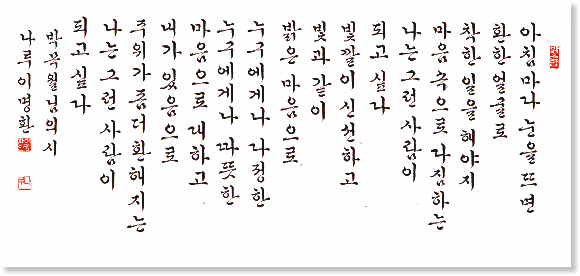 아침마다 눈을 뜨면
환한 얼굴로
착한 일을 해야지
마음 속으로 다짐하는
나는 그런 사람이
되고 싶다
빛깔이 신선하고
빛과 같이
밝은 마음으로
누구에게나 다정한
누구에게나 따뜻한
마음으로 대하고
내가 있음으로
주위가 좀 더 환해지는
나는 그런 사람이
되고 싶다
박목월님의 시
나루 이명환